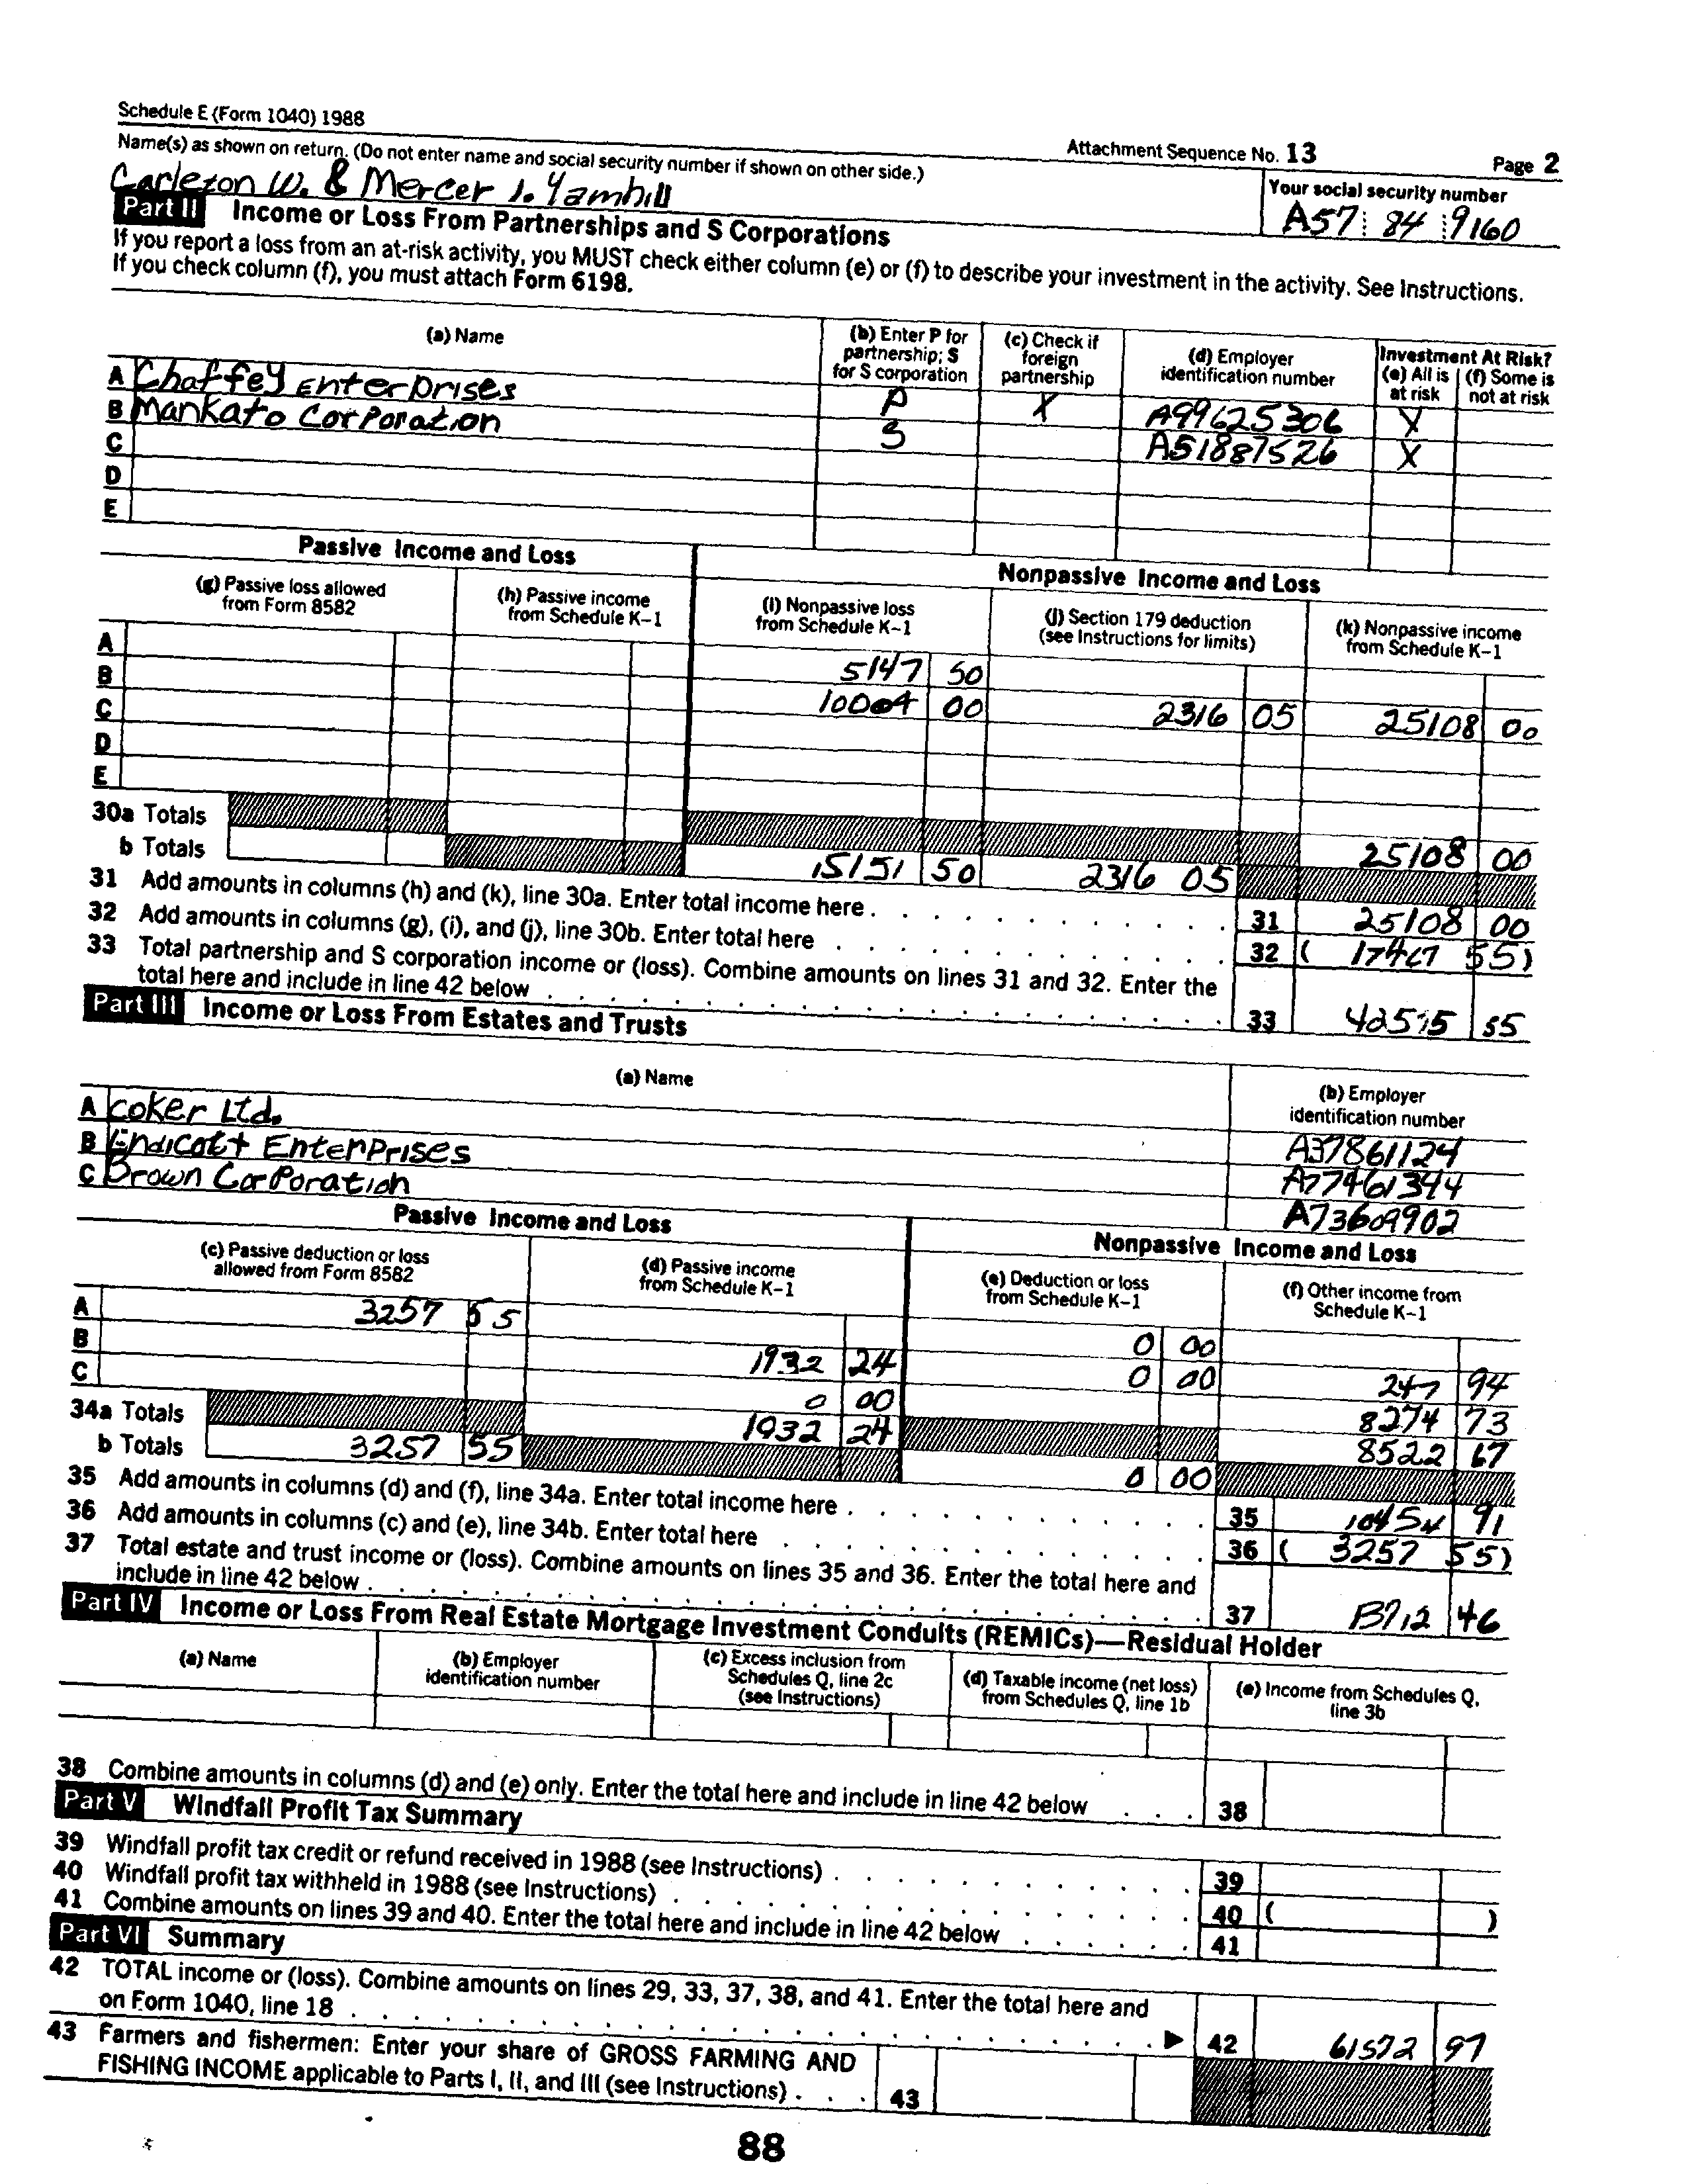 Schedule E (Form 1040) 1988
Attachment Sequence No. 13
Page 2
Name(s) as shown on return. (Do not enter name and social security number if shown on other side.)
Your social security number
Carleton W. & Mercer I. Yamhill
A57 84 9160
Part II Income or Loss From Partnerships and S Corporations
If you report a loss from an at-risk activity, you MUST check either column (e) or (f) to describe your investment in the activity. See Instructions.
If you check column (f), you must attach Form 6198.
(a) Name
(b) Enter P for partnership; S for S corporation
(c) Check if foreign partnership
(d) Employer identification number
Investment At Risk?
(e) All is at risk
(f) Some is not at risk
A Chaffey Enterprises P X A99625306 X
B Mankato Corporation S A51887526 X
C
D
E
Passive Income and Loss
Nonpassive Income and Loss
(g) Passive loss allowed from Form 8582
(h) Passive income from Schedule K-1
(i) Nonpassive loss from Schedule K-1
(j) Section 179 deduction (see Instructions for limits)
(k) Nonpassive income from Schedule K-1
A 5147 50
B 10004 00 2316 05 25108 00
C
D
E
30a Totals 25108 00
b Totals 15151 50 2316 05
31 Add amounts in columns (h) and (k), line 30a. Enter total income here . 31 25108 00
32 Add amounts in columns (g), (i), and (j), line 30b. Enter total here 32 ( 17467 55)
33 Total partnership and S corporation income or (loss). Combine amounts on lines 31 and 32. Enter the
total here and include in line 42 below 33 42575 55
Part III Income or Loss From Estates and Trusts
(a) Name
(b) Employer identification number
A Coker Ltd. A37861124
B Endicott Enterprises A77461344
C Brown Corporation A73609902
Passive Income and Loss
Nonpassive Income and Loss
(c) Passive deduction or loss allowed from Form 8582
(d) Passive income from Schedule K-1
(e) Deduction or loss from Schedule K-1
(f) Other income from Schedule K-1
A 3257 55 0 00
B 1932 24 0 00 247 94
C 0 00 8274 73
34a Totals 1932 24 8522 67
b Totals 3257 55 0 00
35 Add amounts in columns (d) and (f), line 34a. Enter total income here . 35 10454 91
36 Add amounts in columns (c) and (e), line 34b. Enter total here 36 ( 3257 55)
37 Total estate and trust income or (loss). Combine amounts on lines 35 and 36. Enter the total here and
include in line 42 below . 37 13712 46
Part IV Income or Loss From Real Estate Mortgage Investment Conduits (REMICs)—Residual Holder
(a) Name
(b) Employer identification number
(c) Excess inclusion from Schedules Q, line 2c (see Instructions)
(d) Taxable income (net loss) from Schedules Q, line 1b
(e) Income from Schedules Q, line 3b
38 Combine amounts in columns (d) and (e) only. Enter the total here and include in line 42 below 38
Part V Windfall Profit Tax Summary
39 Windfall profit tax credit or refund received in 1988 (see Instructions) . 39
40 Windfall profit tax withheld in 1988 (see Instructions) . 40 ( )
41 Combine amounts on lines 39 and 40. Enter the total here and include in line 42 below 41
Part VI Summary
42 TOTAL income or (loss). Combine amounts on lines 29, 33, 37, 38, and 41. Enter the total here and
on Form 1040, line 18 . ▶ 42 61572 97
43 Farmers and fishermen: Enter your share of GROSS FARMING AND
FISHING INCOME applicable to Parts I, II, and III (see Instructions) . 43
88